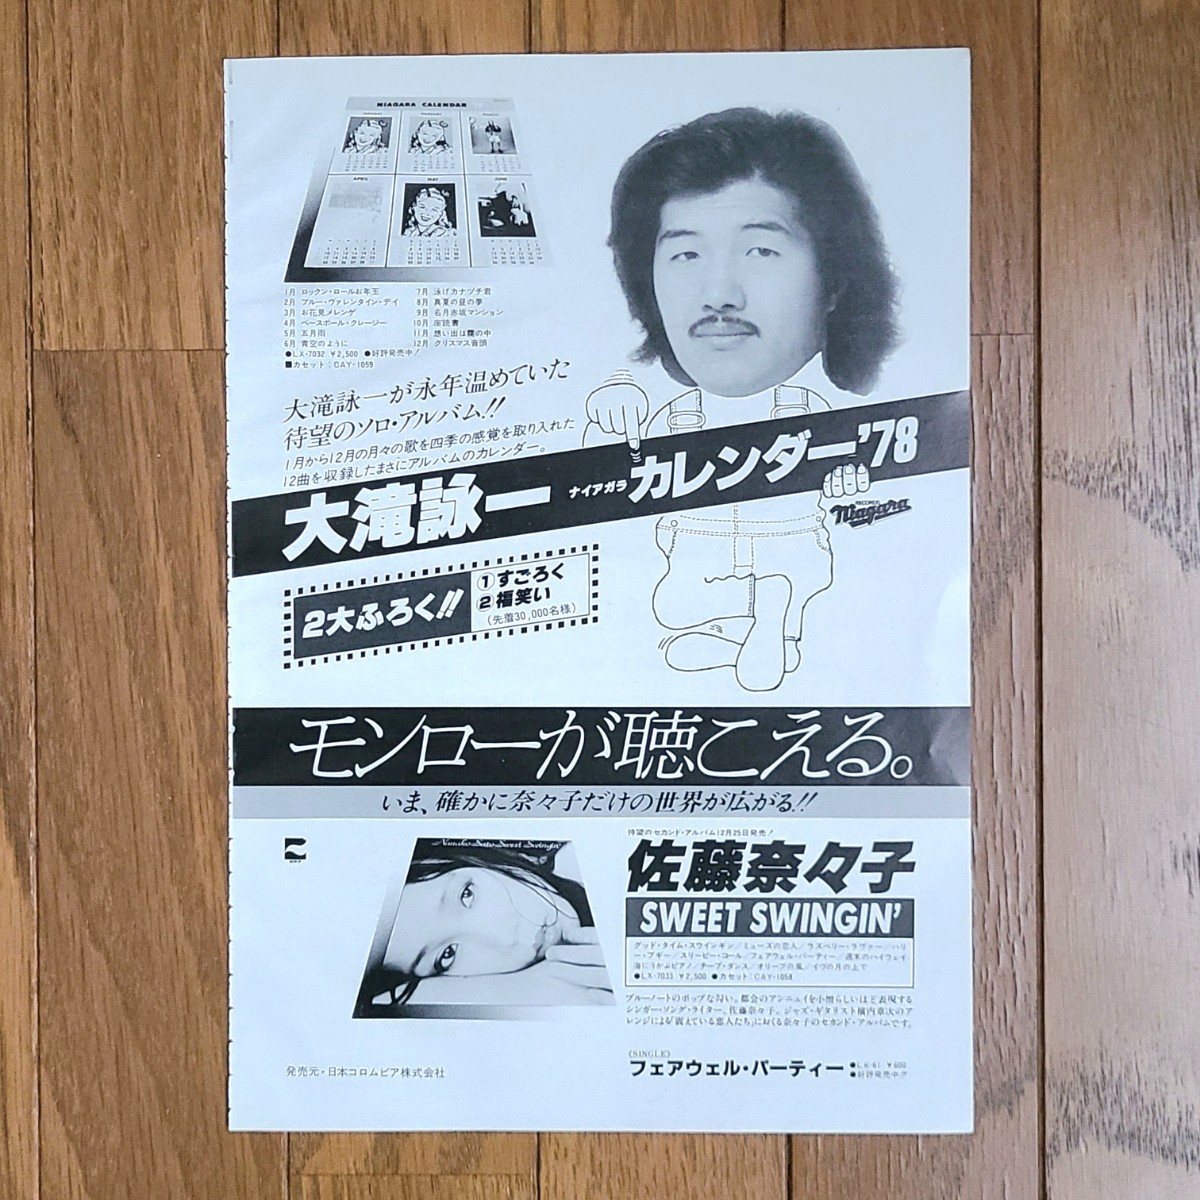 NIAGARA CALENDAR
JANUARY
MARCH
APRIL
MAY
JUNE
1月 ロックン・ロールお年玉
2月 ブルー・ヴァレンタイン・デイ
3月 お花見メレンゲ
4月 ベースボール・クレージー
5月 五月雨
6月 青空のように
7月 泳げカナヅチ君
8月 真夏の昼の夢
9月 名月赤坂マンション
10月 座読書
11月 想い出は霧の中
12月 クリスマス音頭
●LX-7032 ¥2,500 ●好評発売中!
■カセット:CAY-1059
大滝詠一が永年温めていた
待望のソロ・アルバム!!
1月から12月の月々の歌を四季の感覚を取り入れた
12曲を収録したまさにアルバムのカレンダー。
大滝詠一 ナイアガラ カレンダー'78
RECORDS
Niagara
2大ふろく!!
①すごろく
②福笑い
(先着30,000名様)
モンローが聴こえる。
いま、確かに奈々子だけの世界が広がる!!
Nanako Sato Sweet Swingin'
待望のセカンド・アルバム12月25日発売!
佐藤奈々子
SWEET SWINGIN'
グッド・タイム・スウインギン/ミューズの恋人/ラズベリー・ラヴァー/ハリ
ー・ブギー/スリーピー・コール/フェアウェル・パーティー/週末のハイウェイ
海にうかぶピアノ/チープ・ダンス/オリーブの嵐/イヴの月の上で
●LX-7033 ¥2,500 ●カセット:CAY-1058
ブルーノートのポップな匂い。都会のアンニュイを小憎らしいほど表現する
シンガー・ソング・ライター、佐藤奈々子。ジャズ・ギタリスト横内章次のア
レンジによる「震えている恋人たち」におくる奈々子のセカンド・アルバムです。
〈SINGLE〉
フェアウェル・パーティー ●LK-61 ¥600
●好評発売中!!
発売元・日本コロムビア株式会社